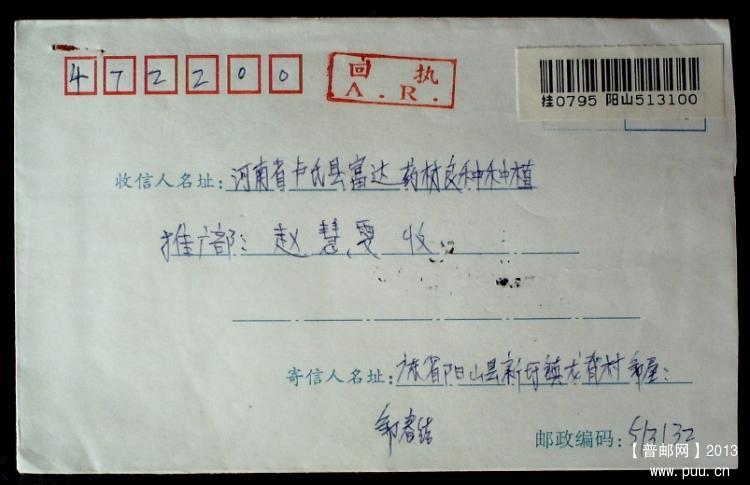 472200
回 执
A.R.
挂0795 阳山513100
收信人名址：河南省卢氏县富达药材良种种植
推广部：赵慧雯收
寄信人名址：广东省阳山县新圩镇龙脊村
邮政编码：513132
【普邮网】2013
www.puu.cn